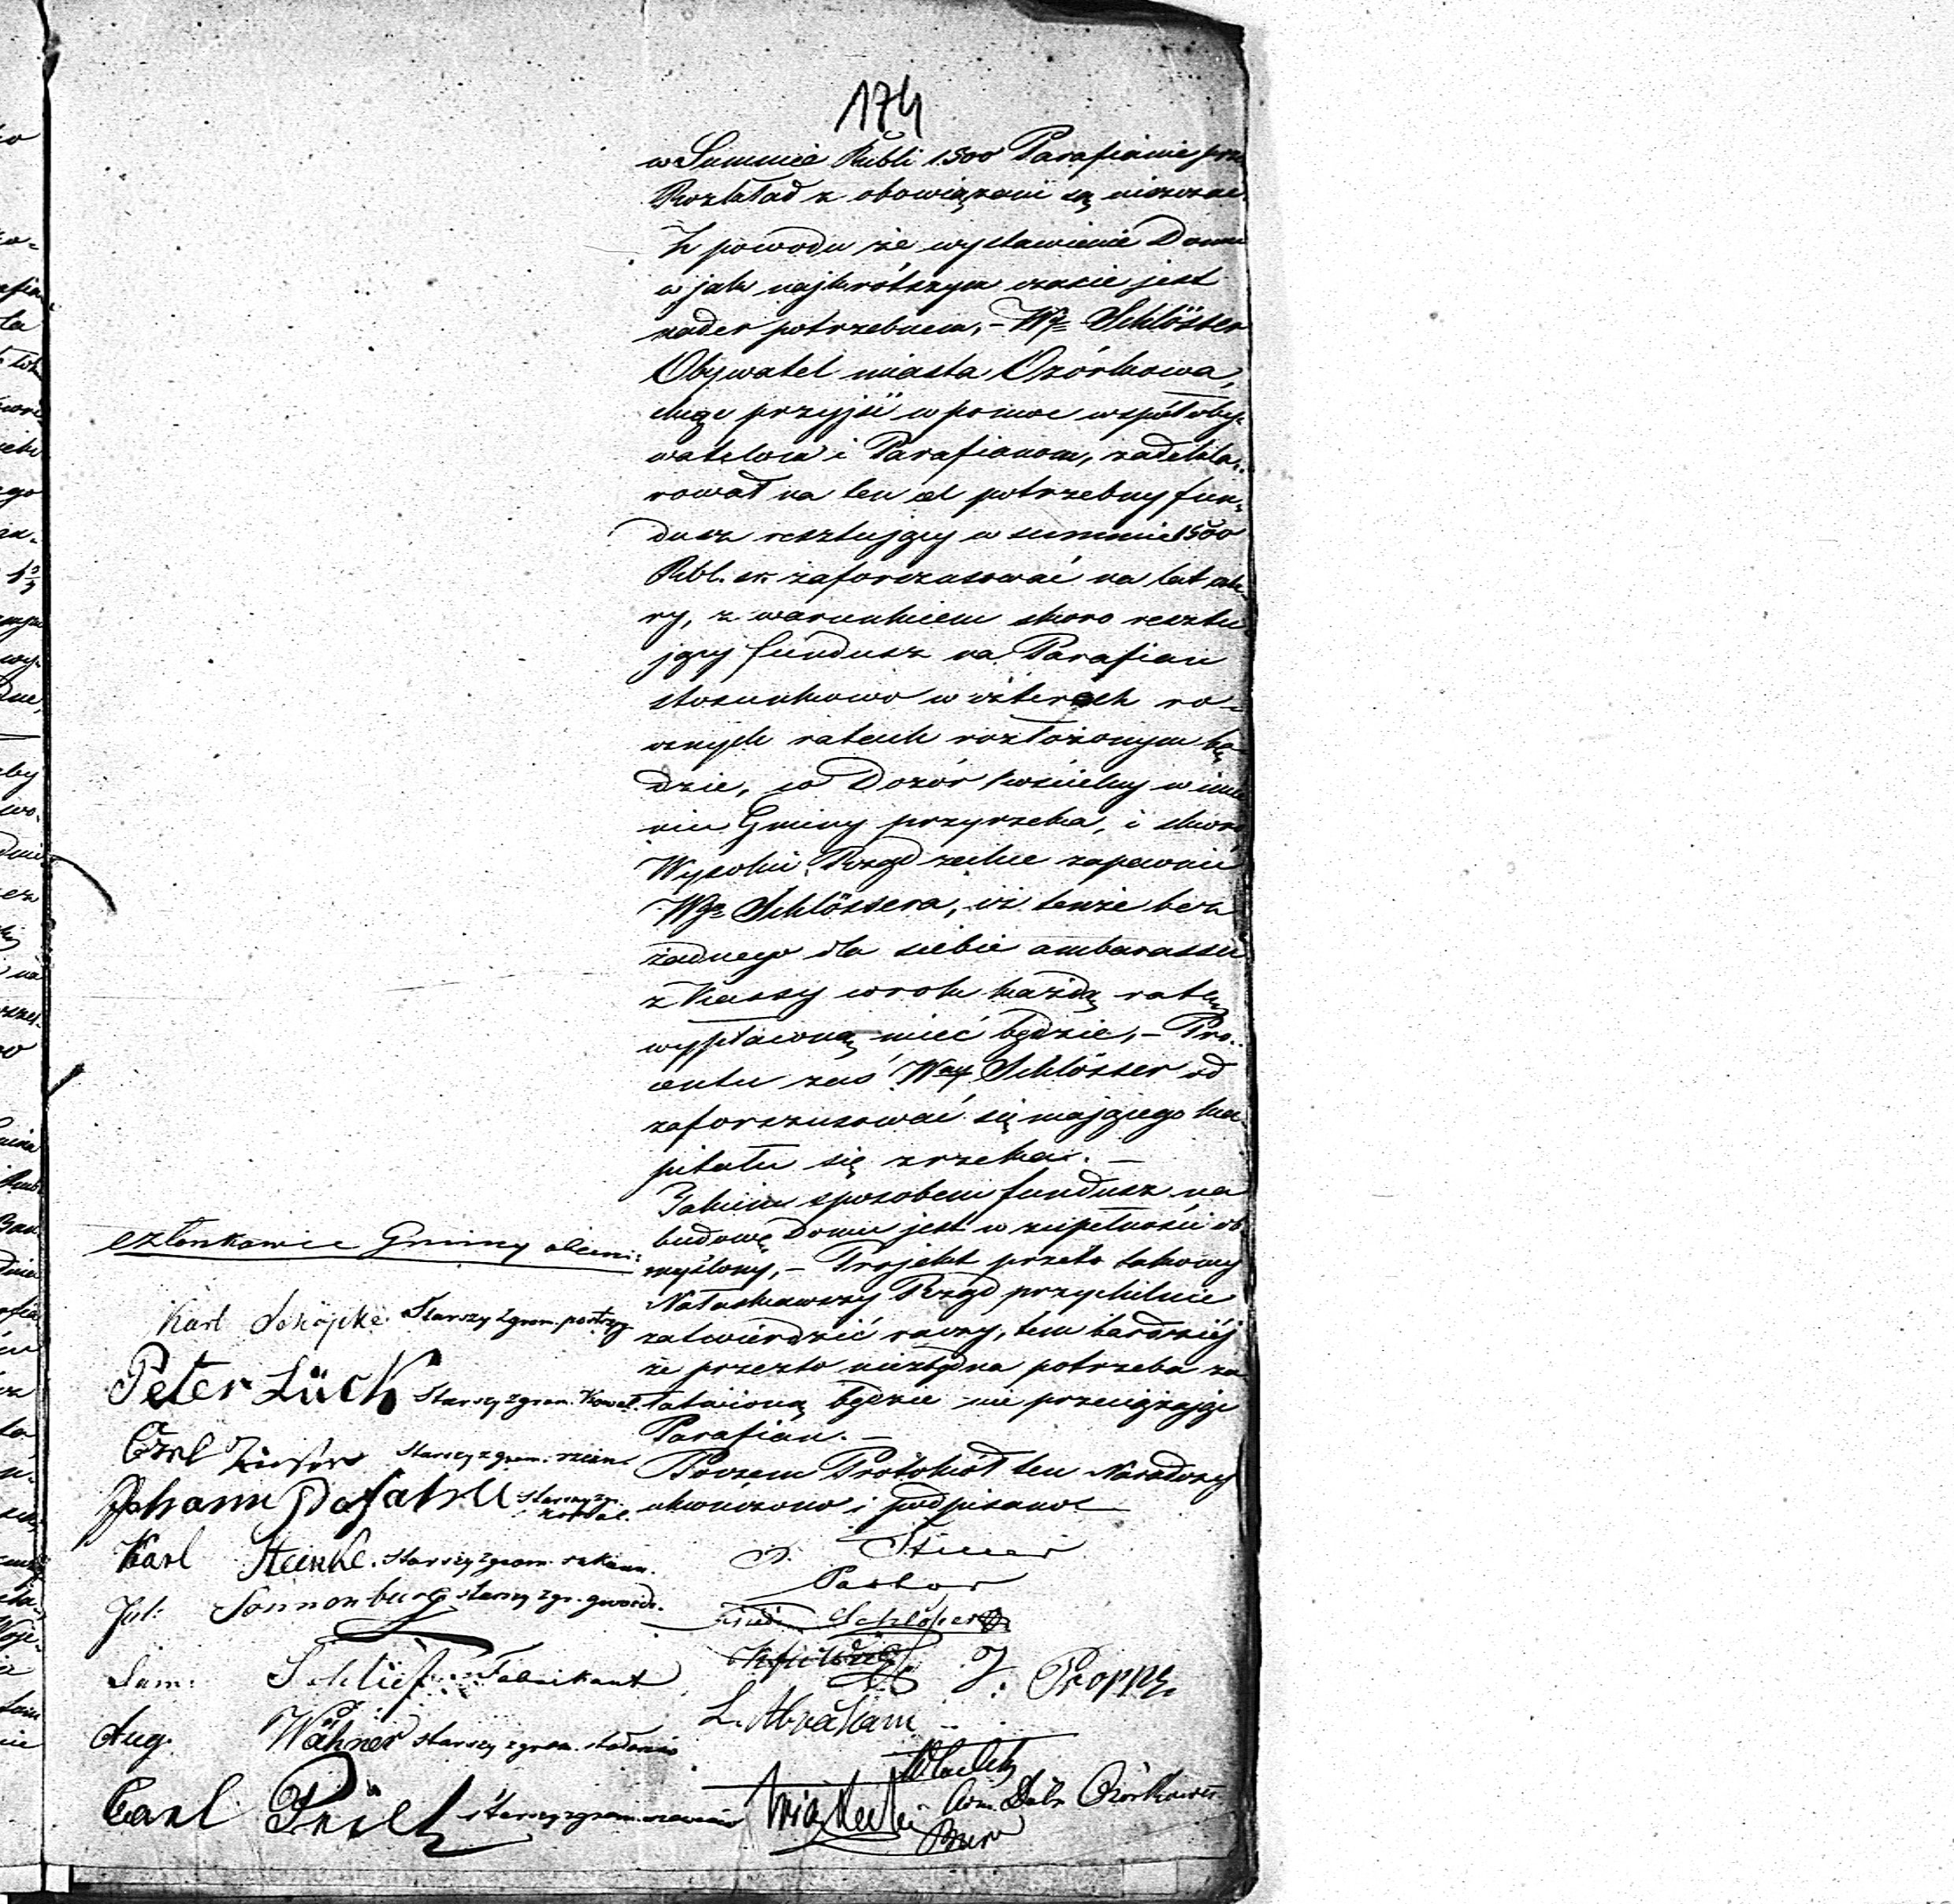 174
w Summie Rubli 1500 Parafianie prze
Rozkład z obowiązani są
Z powodu że wystawienie Domu
w jak najkrótszym czasie jest
nader potrzebnem, – Wy Schlösser
Obywatel miasta Ozórkowa,
chcąc przyjść w pomoc współoby-
watelom i Parafianom, zadekla-
rował na ten cel potrzebny fun-
dusz resztujący w summie 1500
Rbl. sr. zaforszusować na lat czte-
ry, z warunkiem skoro resztu-
jący fundusz na Parafian
stosunkowo w czterech ró-
wnych ratach rozłożonym bę-
dzie, co Dozór kościelny w imie-
niu Gminy przyrzeka, i skoro
Wysoki Rząd zechce zapewnić
Wgo Schlössera, iż tenże bez
żadnego dla siebie ambarassu
z Kassy w roku każdą ratę
wypłaconą mieć będzie, – Pro-
centu zaś Wny Schlösser od
zaforszusować się mającego ka-
pitału się zrzeka. –
Takim sposobem fundusz na
budowę Domu jest w zupełności ob-
myślony, – Projekt przeto takowy
Łaskawszy Rząd przychilnie
zatwierdzić raczy, tem bardziej
że przezto niezbędna potrzeba za-
łatwioną będzie nie przeciążając
Parafian. –
Poczem Protokół ten Naradczy
ukończono i podpisano
Stiller
Pastor
Schlösser
J. Proppe
L. Abraham
Bur
członkowie Gminy obecni:
Karl Schöpke Starszy zgrom. postrzyg
Peter Lück Starszy zgrom. Kowal.
Carl Starszy zgrom.
Johann Starszy zgr.
Karl Steinke. Starszy zgrom.
Jul: Sonnenburg starszy zgr.
Sam: Schlief Fabrikant
Aug. Wähner starszy zgrom.
Carl starszy zgrom.